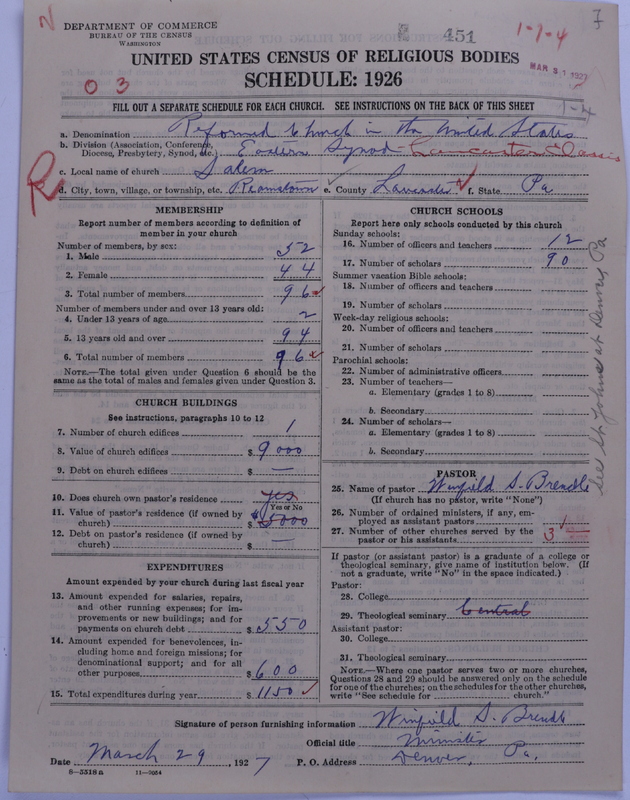 DEPARTMENT OF COMMERCE
BUREAU OF THE CENSUS
WASHINGTON
451
1-7-4
7
MAR 31 1927
UNITED STATES CENSUS OF RELIGIOUS BODIES
SCHEDULE: 1926
0 3
FILL OUT A SEPARATE SCHEDULE FOR EACH CHURCH. SEE INSTRUCTIONS ON THE BACK OF THIS SHEET
a. Denomination Reformed Church in the United States
b. Division (Association, Conference, Diocese, Presbytery, Synod, etc.) Eastern Synod - Lancaster Classis
c. Local name of church Salem
R
d. City, town, village, or township, etc. Reamstown e. County Lancaster f. State Pa
MEMBERSHIP
Report number of members according to definition of member in your church
Number of members, by sex:
1. Male 52
2. Female 44
3. Total number of members 96
Number of members under and over 13 years old:
4. Under 13 years of age 2
5. 13 years old and over 94
6. Total number of members 96
NOTE.—The total given under Question 6 should be the same as the total of males and females given under Question 3.
CHURCH BUILDINGS
See instructions, paragraphs 10 to 12
7. Number of church edifices 1
8. Value of church edifices $ 9000
9. Debt on church edifices $ —
10. Does church own pastor's residence yes
Yes or No
11. Value of pastor's residence (if owned by church) $ 5000
12. Debt on pastor's residence (if owned by church) $ —
EXPENDITURES
Amount expended by your church during last fiscal year
13. Amount expended for salaries, repairs, and other running expenses; for improvements or new buildings; and for payments on church debt $ 550
14. Amount expended for benevolences, including home and foreign missions; for denominational support; and for all other purposes $ 600
15. Total expenditures during year $ 1150
CHURCH SCHOOLS
Report here only schools conducted by this church
Sunday schools:
16. Number of officers and teachers 12
17. Number of scholars 90
Summer vacation Bible schools:
18. Number of officers and teachers
19. Number of scholars
Week-day religious schools:
20. Number of officers and teachers
21. Number of scholars
Parochial schools:
22. Number of administrative officers
23. Number of teachers—
a. Elementary (grades 1 to 8)
b. Secondary
24. Number of scholars—
a. Elementary (grades 1 to 8)
b. Secondary
See St. Johns at Denver, Pa
PASTOR
25. Name of pastor Winfield S. Brendle
(If church has no pastor, write "None")
26. Number of ordained ministers, if any, employed as assistant pastors
27. Number of other churches served by the pastor or his assistants 3
If pastor (or assistant pastor) is a graduate of a college or theological seminary, give name of institution below. (If not a graduate, write "No" in the space indicated.)
Pastor:
28. College
29. Theological seminary Central
Assistant pastor:
30. College
31. Theological seminary
NOTE.—Where one pastor serves two or more churches, Questions 28 and 29 should be answered only on the schedule for one of the churches; on the schedules for the other churches, write "See schedule for church."
Signature of person furnishing information Winfield S. Brendle
Official title Minister
Date March 29, 1927 P. O. Address Denver, Pa.
8—5518 a 11—9054